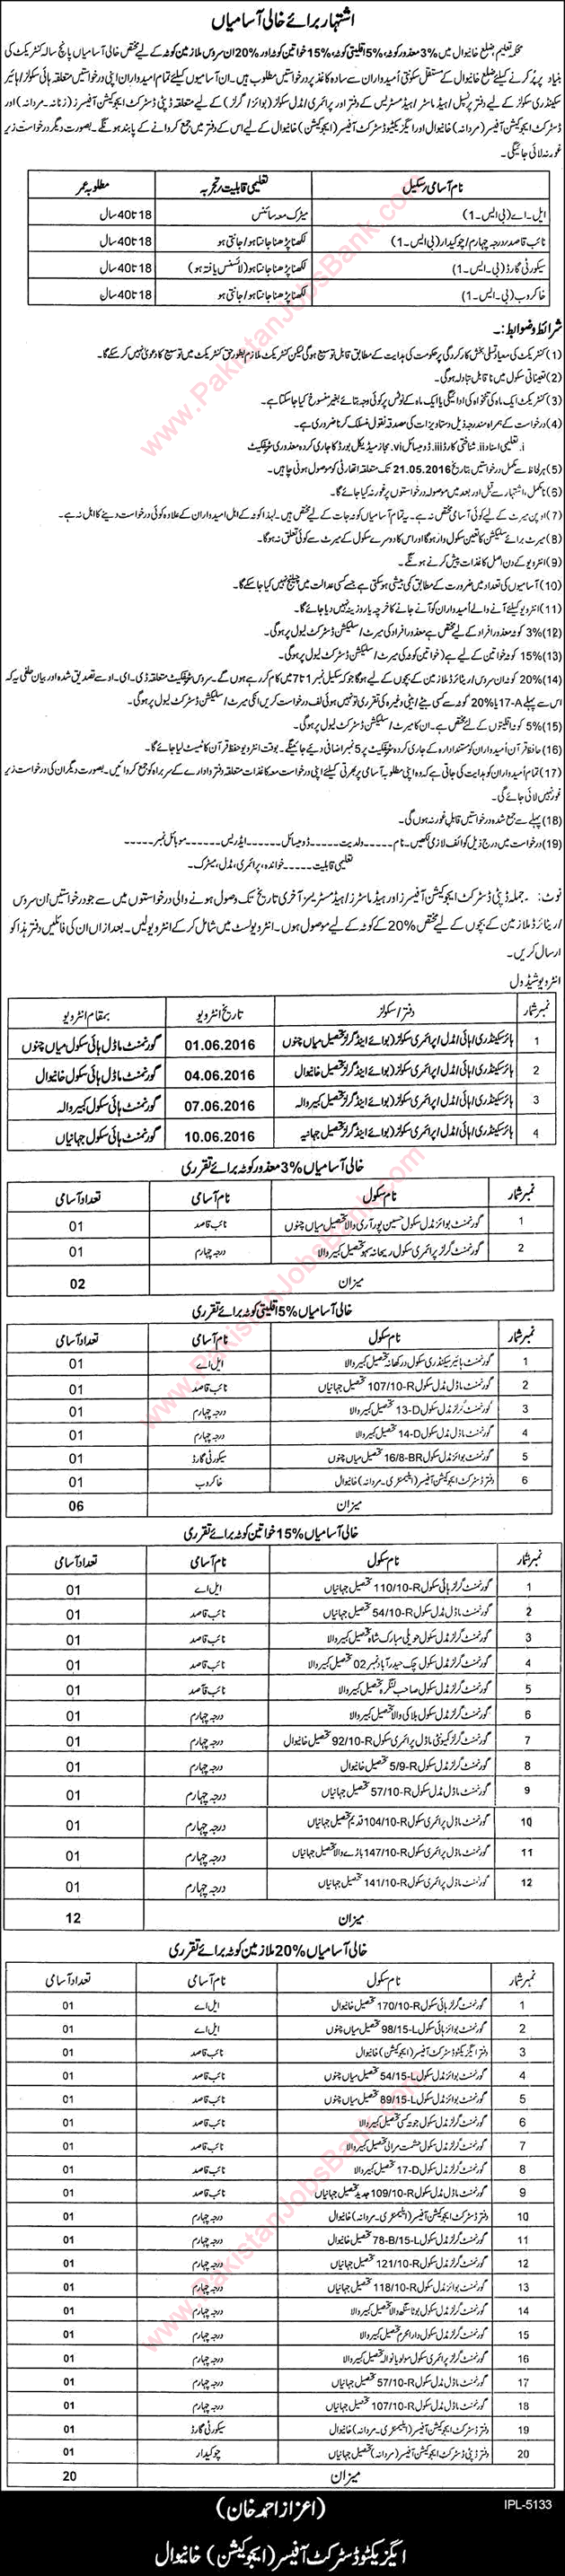 اشتہار برائے خالی آسامیاں
محکمہ تعلیم ضلع خانیوال میں 3% معذور کوٹہ، 5% اقلیتی کوٹہ، 15% خواتین کوٹہ اور 20% ان سروس ملازمین کوٹہ کے لیے مختص خالی آسامیاں پانچ سالہ کنٹریکٹ کی
بنیاد پر پُر کرنے کیلئے ضلع خانیوال کے مستقل سکونتی امیدواران سے سادہ کاغذ پر درخواستیں مطلوب ہیں۔ ان آسامیوں کیلئے تمام امیدواران اپنی درخواستیں متعلقہ ہائی سکولز/ ہائیر
سکینڈری سکولز کے لیے دفتر پرنسپل/ ہیڈ ماسٹر/ ہیڈ مسٹریس کے دفتر اور پرائمری/ مڈل سکولز (بوائز/ گرلز) کے لیے متعلقہ ڈپٹی ڈسٹرکٹ ایجوکیشن آفیسرز (زنانہ۔ مردانہ) اور
ڈسٹرکٹ ایجوکیشن آفیسرز (مردانہ) خانیوال اور ایگزیکٹو ڈسٹرکٹ آفیسر (ایجوکیشن) خانیوال کے لیے اس کے دفتر میں جمع کروانے کے پابند ہونگے۔ بصورت دیگر درخواست زیر
غور نہ لائی جائیگی۔
نام آسامی/ سکیل تعلیمی قابلیت/ تجربہ مطلوبہ عمر
ایل۔ اے (بی ایس۔ 1) میٹرک معہ سائنس 18 تا 40 سال
نائب قاصد/ درجہ چہارم/ چوکیدار (بی ایس۔ 1) لکھنا پڑھنا جانتا ہو/ جانتی ہو 18 تا 40 سال
سیکورٹی گارڈ (بی۔ ایس۔ 1) لکھنا پڑھنا جانتا ہو (لائسنس یافتہ ہو) 18 تا 40 سال
خاکروب (بی۔ ایس۔ 1) لکھنا پڑھنا جانتا ہو/ جانتی ہو 18 تا 40 سال
شرائط و ضوابط:۔
(1) کنٹریکٹ کی معیاد تسلی بخش کارکردگی پر حکومت کی ہدایت کے مطابق قابل توسیع ہوگی لیکن کنٹریکٹ ملازم بطور حق کنٹریکٹ میں توسیع کا دعویٰ نہیں کر سکے گا۔
(2) تعیناتی سکول میں ناقابل تبادلہ ہوگی۔
(3) کنٹریکٹ ایک ماہ کی تنخواہ کی ادائیگی یا ایک ماہ کے نوٹس پر کوئی وجہ بتائے بغیر منسوخ کیا جا سکتا ہے۔
(4) درخواست کے ہمراہ مندرجہ ذیل دستاویزات کی مصدقہ نقول منسلک کرنا ضروری ہے۔
i. تعلیمی اسناد ii. شناختی کارڈ iii. ڈومیسائل vi. مجاز میڈیکل بورڈ کا جاری کردہ معذوری سرٹیفکیٹ
(5) ہر لحاظ سے مکمل درخواستیں بتاریخ 21.05.2016 تک متعلقہ اتھارٹی کو موصول ہونی چاہیں۔
(6) نامکمل، اشتہار سے قبل اور بعد میں موصولہ درخواستوں پر غور نہ کیا جائے گا۔
(7) اوپن میرٹ کے لیے کوئی آسامی مختص نہ ہے۔ یہ تمام آسامیاں کوٹہ جات کے لیے مختص ہیں۔ لہذا کوٹہ کے اہل امیدواران کے علاوہ کوئی درخواست دینے کا اہل نہ ہے۔
(8) میرٹ برائے سلیکشن کا تعین سکول وار ہوگا اور اس کا دوسرے سکول کے میرٹ سے کوئی تعلق نہ ہوگا۔
(9) انٹرویو کے دن اصل کاغذات پیش کرنے ہونگے۔
(10) آسامیوں کی تعداد میں ضرورت کے مطابق کمی بیشی ہو سکتی ہے جسے کسی عدالت میں چیلنج نہیں کیا جا سکے گا۔
(11) انٹرویو کیلئے آنے والے امیدواران کو آنے جانے کا خرچہ یا روزینہ نہیں دیا جائے گا۔
(12) 3% کوٹہ معذور افراد کے لیے مختص ہے معذور افراد کی میرٹ/ سلیکشن ڈسٹرکٹ لیول پر ہوگی۔
(13) 15% کوٹہ خواتین کے لیے ہے (خواتین کوٹہ کی میرٹ/ سلیکشن ڈسٹرکٹ لیول پر ہوگی۔
(14) 20% کوٹہ ان سروس/ ریٹائرڈ ملازمین کے بچوں کے لیے ہوگا جو کہ سکیل نمبر 1 تا 7 میں کام کر رہے ہوں گے۔ سروس سرٹیفکیٹ متعلقہ ڈی۔ ای۔ او سے تصدیق شدہ اور بیان حلفی یہ کہ
اس سے پہلے 17-A یا 20% کوٹہ سے کسی بیٹے/ بیٹی وغیرہ کی تقرری تو نہیں ہوئی لف درخواست کریں انکی میرٹ/ سلیکشن ڈسٹرکٹ لیول پر ہوگی۔
(15) 5% کوٹہ اقلیتوں کے لئے مختص ہے۔ ان کا میرٹ/ سلیکشن ڈسٹرکٹ لیول پر ہوگی۔
(16) حافظ قرآن امیدواران کو مستند ادارہ کے جاری کردہ سرٹیفکیٹ پر 5 نمبر اضافی دیے جائینگے۔ بوقت انٹرویو حفظ قرآن کا ٹیسٹ لیا جائے گا۔
(17) تمام امیدواران کو ہدایت کی جاتی ہے کہ وہ اپنی مطلوبہ آسامی پر بھرتی کیلئے اپنی درخواست معہ کاغذات متعلقہ دفتر و ادارے کے سربراہ کو جمع کروائیں۔ بصورت دیگر ان کی درخواست زیر
غور نہیں لائی جائے گی۔
(18) پہلے سے جمع شدہ درخواستیں قابل غور نہ ہوں گی۔
(19) درخواست میں درج ذیل کوائف لازمی لکھیں۔ نام ------ ولدیت ------ ڈومیسائل ------ ایڈریس ------ موبائل نمبر ------
تعلیمی قابلیت ------ خواندہ، پرائمری، مڈل، میٹرک۔
نوٹ:۔ جملہ ڈپٹی ڈسٹرکٹ ایجوکیشن آفیسرز اور ہیڈ ماسٹرز/ ہیڈ مسٹریسز آخری تاریخ تک وصول ہونے والی درخواستوں میں سے جو درخواستیں اِن سروس
/ ریٹائرڈ ملازمین کے بچوں کے لیے مختص 20% کے کوٹہ کے لیے موصول ہوں۔ انٹرویو لسٹ میں شامل کر کے انٹرویو لیں۔ بعد ازاں ان کی فائلیں دفتر ہذا کو
ارسال کریں۔
انٹرویو شیڈول
نمبر شمار دفتر/ سکولز تاریخ انٹرویو بمقام انٹرویو
1 ہائر سکینڈری/ ہائی/ مڈل/ پرائمری سکولز (بوائے اینڈ گرلز) تحصیل میاں چنوں 01.06.2016 گورنمنٹ ماڈل ہائی سکول میاں چنوں
2 ہائر سکینڈری/ ہائی/ مڈل/ پرائمری سکولز (بوائے اینڈ گرلز) تحصیل خانیوال 04.06.2016 گورنمنٹ ماڈل ہائی سکول خانیوال
3 ہائر سکینڈری/ ہائی/ مڈل/ پرائمری سکولز (بوائے اینڈ گرلز) تحصیل کبیر والہ 07.06.2016 گورنمنٹ ہائی سکول کبیر والہ
4 ہائر سکینڈری/ ہائی/ مڈل/ پرائمری سکولز (بوائے اینڈ گرلز) تحصیل جہانیہ 10.06.2016 گورنمنٹ ہائی سکول جہانیاں
خالی آسامیاں 3% معذور کوٹہ برائے تقرری
نمبر شمار نام سکول نام آسامی تعداد آسامی
1 گورنمنٹ بوائز مڈل سکول حسین پور آری والا تحصیل میاں چنوں نائب قاصد 01
2 گورنمنٹ گرلز پرائمری سکول ریحانہ سہو تحصیل کبیر والا درجہ چہارم 01
میزان 02
خالی آسامیاں 5% اقلیتی کوٹہ برائے تقرری
نمبر شمار نام سکول نام آسامی تعداد آسامی
1 گورنمنٹ ہائیر سیکنڈری سکول درکھانہ تحصیل کبیر والا ایل اے 01
2 گورنمنٹ ماڈل مڈل سکول 107/10-R تحصیل جہانیاں نائب قاصد 01
3 گورنمنٹ گرلز مڈل سکول 13-D تحصیل کبیر والا درجہ چہارم 01
4 گورنمنٹ ماڈل مڈل سکول 14-D تحصیل کبیر والا درجہ چہارم 01
5 گورنمنٹ بوائز مڈل سکول 16/8-BR تحصیل میاں چنوں سیکورٹی گارڈ 01
6 دفتر ڈسٹرکٹ ایجوکیشن آفیسر (ایلیمنٹری۔ مردانہ) خانیوال خاکروب 01
میزان 06
خالی آسامیاں 15% خواتین کوٹہ برائے تقرری
نمبر شمار نام سکول نام آسامی تعداد آسامی
1 گورنمنٹ گرلز ہائی سکول 110/10-R تحصیل جہانیاں ایل اے 01
2 گورنمنٹ ماڈل مڈل سکول 54/10-R تحصیل جہانیاں نائب قاصد 01
3 گورنمنٹ گرلز مڈل سکول حویلی مبارک شاہ تحصیل کبیر والا نائب قاصد 01
4 گورنمنٹ گرلز مڈل سکول چک حیدر آباد نمبر 02 تحصیل کبیر والا نائب قاصد 01
5 گورنمنٹ گرلز مڈل سکول صاحب لنگرہ تحصیل کبیر والا نائب قاصد 01
6 گورنمنٹ گرلز مڈل سکول ہلاکی والا تحصیل کبیر والا درجہ چہارم 01
7 گورنمنٹ گرلز کمیونٹی ماڈل پرائمری سکول 92/10-R تحصیل خانیوال درجہ چہارم 01
8 گورنمنٹ گرلز مڈل سکول 5/9-R تحصیل خانیوال درجہ چہارم 01
9 گورنمنٹ ماڈل مڈل سکول 57/10-R تحصیل جہانیاں درجہ چہارم 01
10 گورنمنٹ ماڈل پرائمری سکول 104/10-R قدیم تحصیل جہانیاں درجہ چہارم 01
11 گورنمنٹ ماڈل پرائمری سکول 147/10-R باڑے والا تحصیل جہانیاں درجہ چہارم 01
12 گورنمنٹ ماڈل پرائمری سکول 141/10-R تحصیل جہانیاں درجہ چہارم 01
میزان 12
خالی آسامیاں 20% ملازمین کوٹہ برائے تقرری
نمبر شمار نام سکول نام آسامی تعداد آسامی
1 گورنمنٹ گرلز ہائی سکول 170/10-R تحصیل خانیوال ایل اے 01
2 گورنمنٹ بوائز ہائی سکول 98/15-L تحصیل میاں چنوں ایل اے 01
3 دفتر ایگزیکٹو ڈسٹرکٹ آفیسر (ایجوکیشن) خانیوال نائب قاصد 01
4 گورنمنٹ بوائز مڈل سکول 54/15-L تحصیل میاں چنوں نائب قاصد 01
5 گورنمنٹ بوائز مڈل سکول 89/15-L تحصیل میاں چنوں نائب قاصد 01
6 گورنمنٹ گرلز مڈل سکول جوتہ کسی تحصیل کبیر والا نائب قاصد 01
7 گورنمنٹ گرلز مڈل سکول حشمت مرالی تحصیل کبیر والا نائب قاصد 01
8 گورنمنٹ گرلز مڈل سکول 17-D تحصیل کبیر والا نائب قاصد 01
9 گورنمنٹ ماڈل مڈل سکول 109/10-R جدید تحصیل جہانیاں نائب قاصد 01
10 دفتر ڈسٹرکٹ ایجوکیشن آفیسر (ایلیمنٹری۔ مردانہ) خانیوال درجہ چہارم 01
11 گورنمنٹ گرلز مڈل سکول 78-B/15-L تحصیل خانیوال درجہ چہارم 01
12 گورنمنٹ گرلز مڈل سکول 121/10-R تحصیل جہانیاں درجہ چہارم 01
13 گورنمنٹ بوائز مڈل سکول 118/10-R تحصیل جہانیاں درجہ چہارم 01
14 گورنمنٹ گرلز مڈل سکول بوٹا سنگھ والا تحصیل کبیر والا درجہ چہارم 01
15 گورنمنٹ گرلز مڈل سکول دارا محرم تحصیل کبیر والا درجہ چہارم 01
16 گورنمنٹ گرلز پرائمری سکول تحصیل کبیر والا درجہ چہارم 01
17 گورنمنٹ ماڈل مڈل سکول 57/10-R تحصیل جہانیاں درجہ چہارم 01
18 گورنمنٹ ماڈل مڈل سکول 107/10-R تحصیل جہانیاں درجہ چہارم 01
19 دفتر ڈسٹرکٹ ایجوکیشن آفیسر (ایلیمنٹری۔ مردانہ) خانیوال سیکورٹی گارڈ 01
20 دفتر ڈپٹی ڈسٹرکٹ ایجوکیشن آفیسر (مردانہ) تحصیل جہانیاں چوکیدار 01
میزان 20
(اعزاز احمد خان)
IPL-5133
ایگزیکٹو ڈسٹرکٹ آفیسر (ایجوکیشن) خانیوال
www.PakistanJobsBank.com
www.PakistanJobsBank.com
www.PakistanJobsBank.com